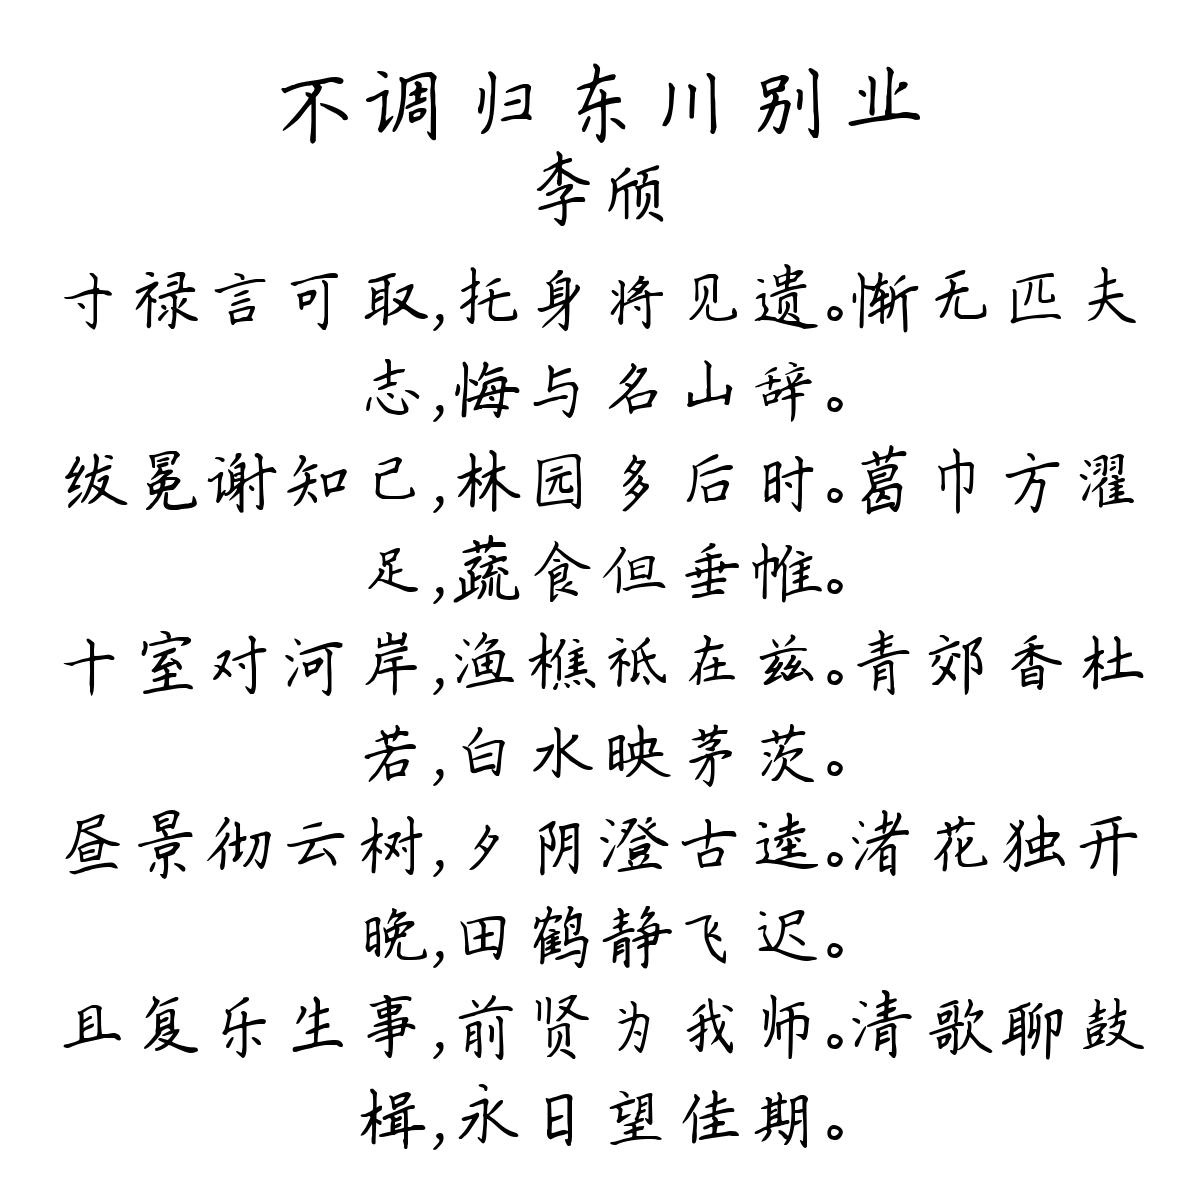 不调归东川别业
李颀
寸禄言可取,托身将见遗。惭无匹夫
志,悔与名山辞。
绂冕谢知己,林园多后时。葛巾方濯
足,蔬食但垂帷。
十室对河岸,渔樵祗在兹。青郊香杜
若,白水映茅茨。
昼景彻云树,夕阴澄古逵。渚花独开
晚,田鹤静飞迟。
且复乐生事,前贤为我师。清歌聊鼓
楫,永日望佳期。